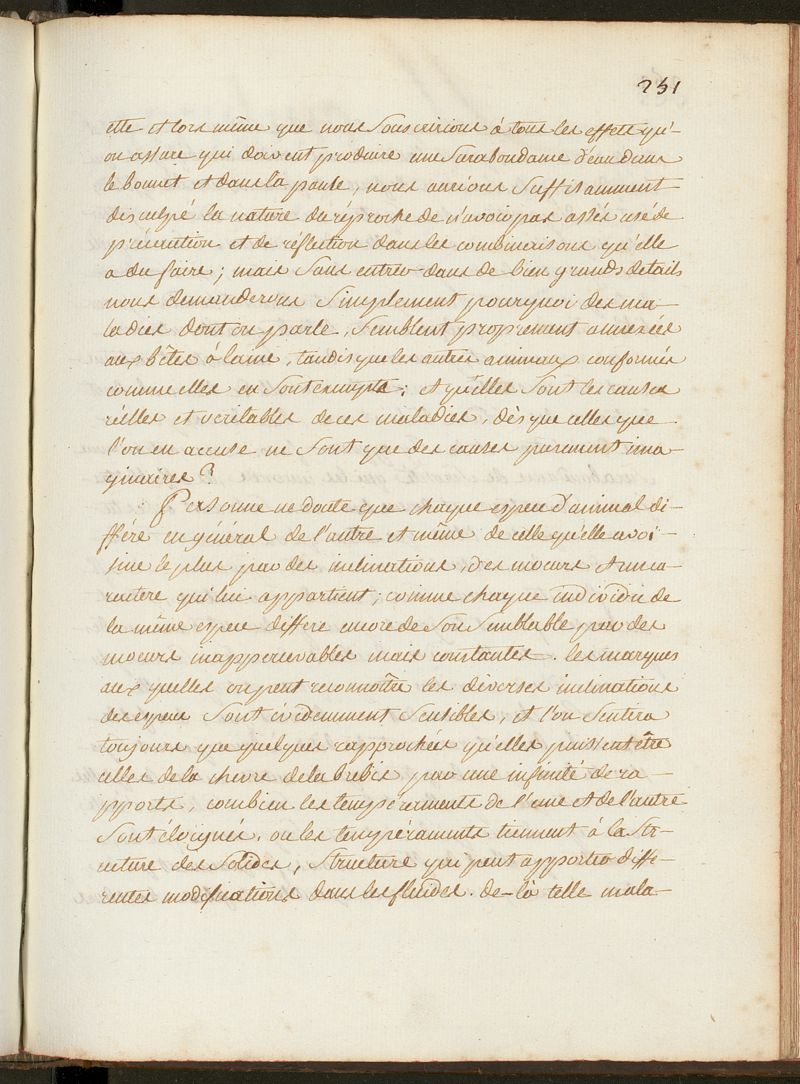 251
ette et lors même que nous Souscririons à tous les effets qu'-
on assure qui doivent produire une Surabondance d'eau dans
le bonnet et dans la panse, nous aurions Suffisamment
disculpé la nature du réproche de n'avoir pas assés usé de
précaution et de réflection dans les combinaisons qu'elle
a du faire; mais Sans entrer dans de bien grands detail,
nous demanderons Simplement pourquoi des ma-
ladies dont on parle, Semblent proprement annexées
aux bêtes à laine, tandis que les autres animaux conformés
comme elles en Sont exempts; et qu'elles Sont les causes
réelles et veritables de ces maladies, dès que celles que
l'on en accuse ne Sont que des causes purement ima-
ginaires?
Personne ne doute que chaque espece d'animal di-
ffére en général de l'autre et même de celle qu'elle avoi-
sine le plus par des inclinations, des mœurs et un ca-
ractere qui lui appartient; comme chaque individu de
la même espece differe encore de Son Semblable par des
mœurs inappercevables mais constantes. les marques
aux quelles on peut reconnoître les diverses inclinations
des especes Sont évidemment Sensibles, et l'on Sentira
toujours que quelques rapprochées qu'elles puissent être
celles de la chevre de la brebis par une infinité de ra-
pports, combien les tempérements de l'une et de l'autre
Sont éloignés. or les tempéraments tiennent à la Str-
ucture des Solides, Structure qui peut apporter diffé-
rentes modifications dans les fluides. de-là telle mala-